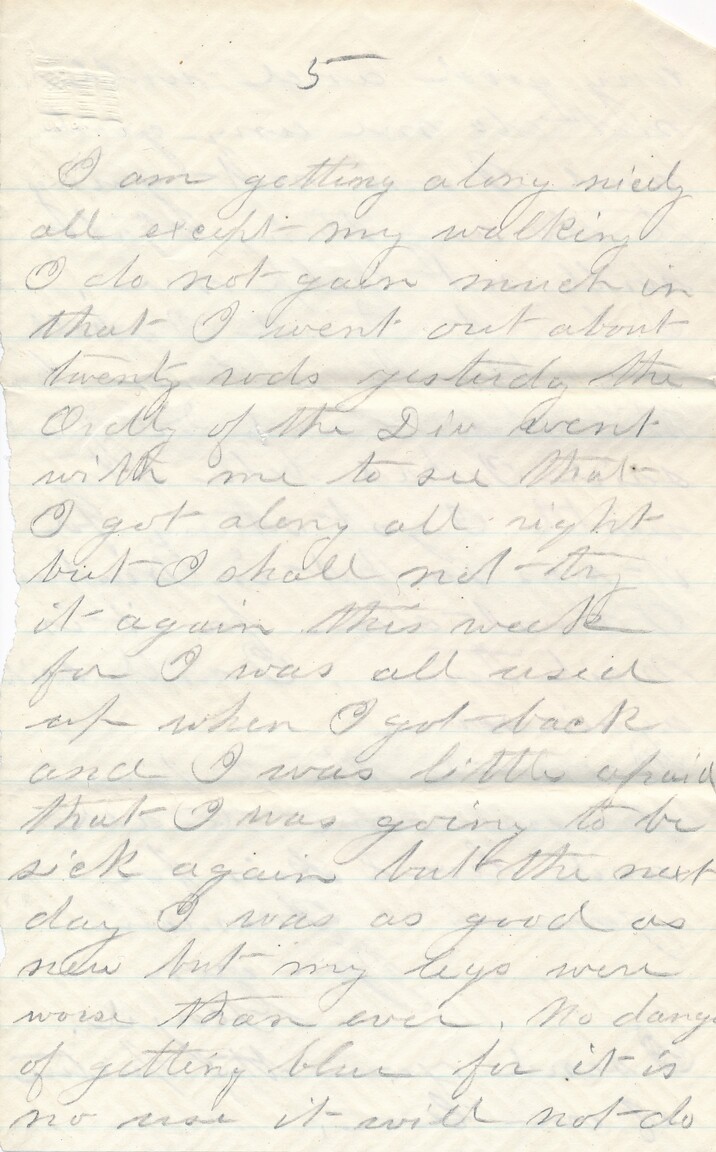 5
I am getting along nicely
all except my walking
I do not gain much in
that I went out about
twenty rods yesterday the
Ordly of the Div went
with me to see that
I got along all right
but I shall not try
it again this week
for I was all used
up when I got back
and I was little afraid
that I was going to be
sick again but the next
day I was as good as
new but my legs were
worse than ever. No dange
of getting blue for it is
no use it will not do